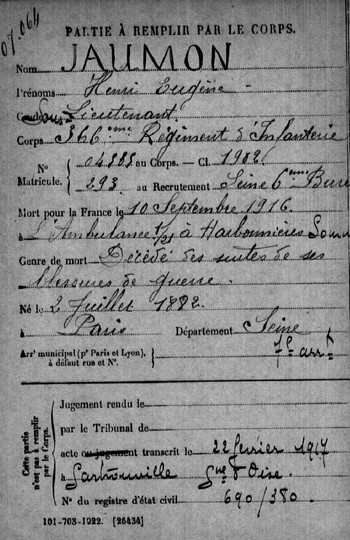 07.064
PARTIE À REMPLIR PAR LE CORPS.
Nom JAUMON
Prénoms Henri Eugène
Grade Sous-Lieutenant
Corps 366ème Régiment d'Infanterie
N° 04883 au Corps. — Cl. 1902.
Matricule. 293 au Recrutement Seine 6ème Bure
Mort pour la France le 10 Septembre 1916
à L'Ambulance 1/21 à Harbonnières Som
Genre de mort Décédé des suites de ses
blessures de guerre.
Né le 2 Juillet 1882
à Paris Département Seine
Arrt municipal (pr Paris et Lyon), à défaut rue et N°. 7e arrt
Cette partie n'est pas à remplir par le Corps.
Jugement rendu le
par le Tribunal de
acte ou jugement transcrit le 22 février 1917
à Sartrouville Sne & Oise.
N° du registre d'état civil 690/380.
101-708-1922. [26434]